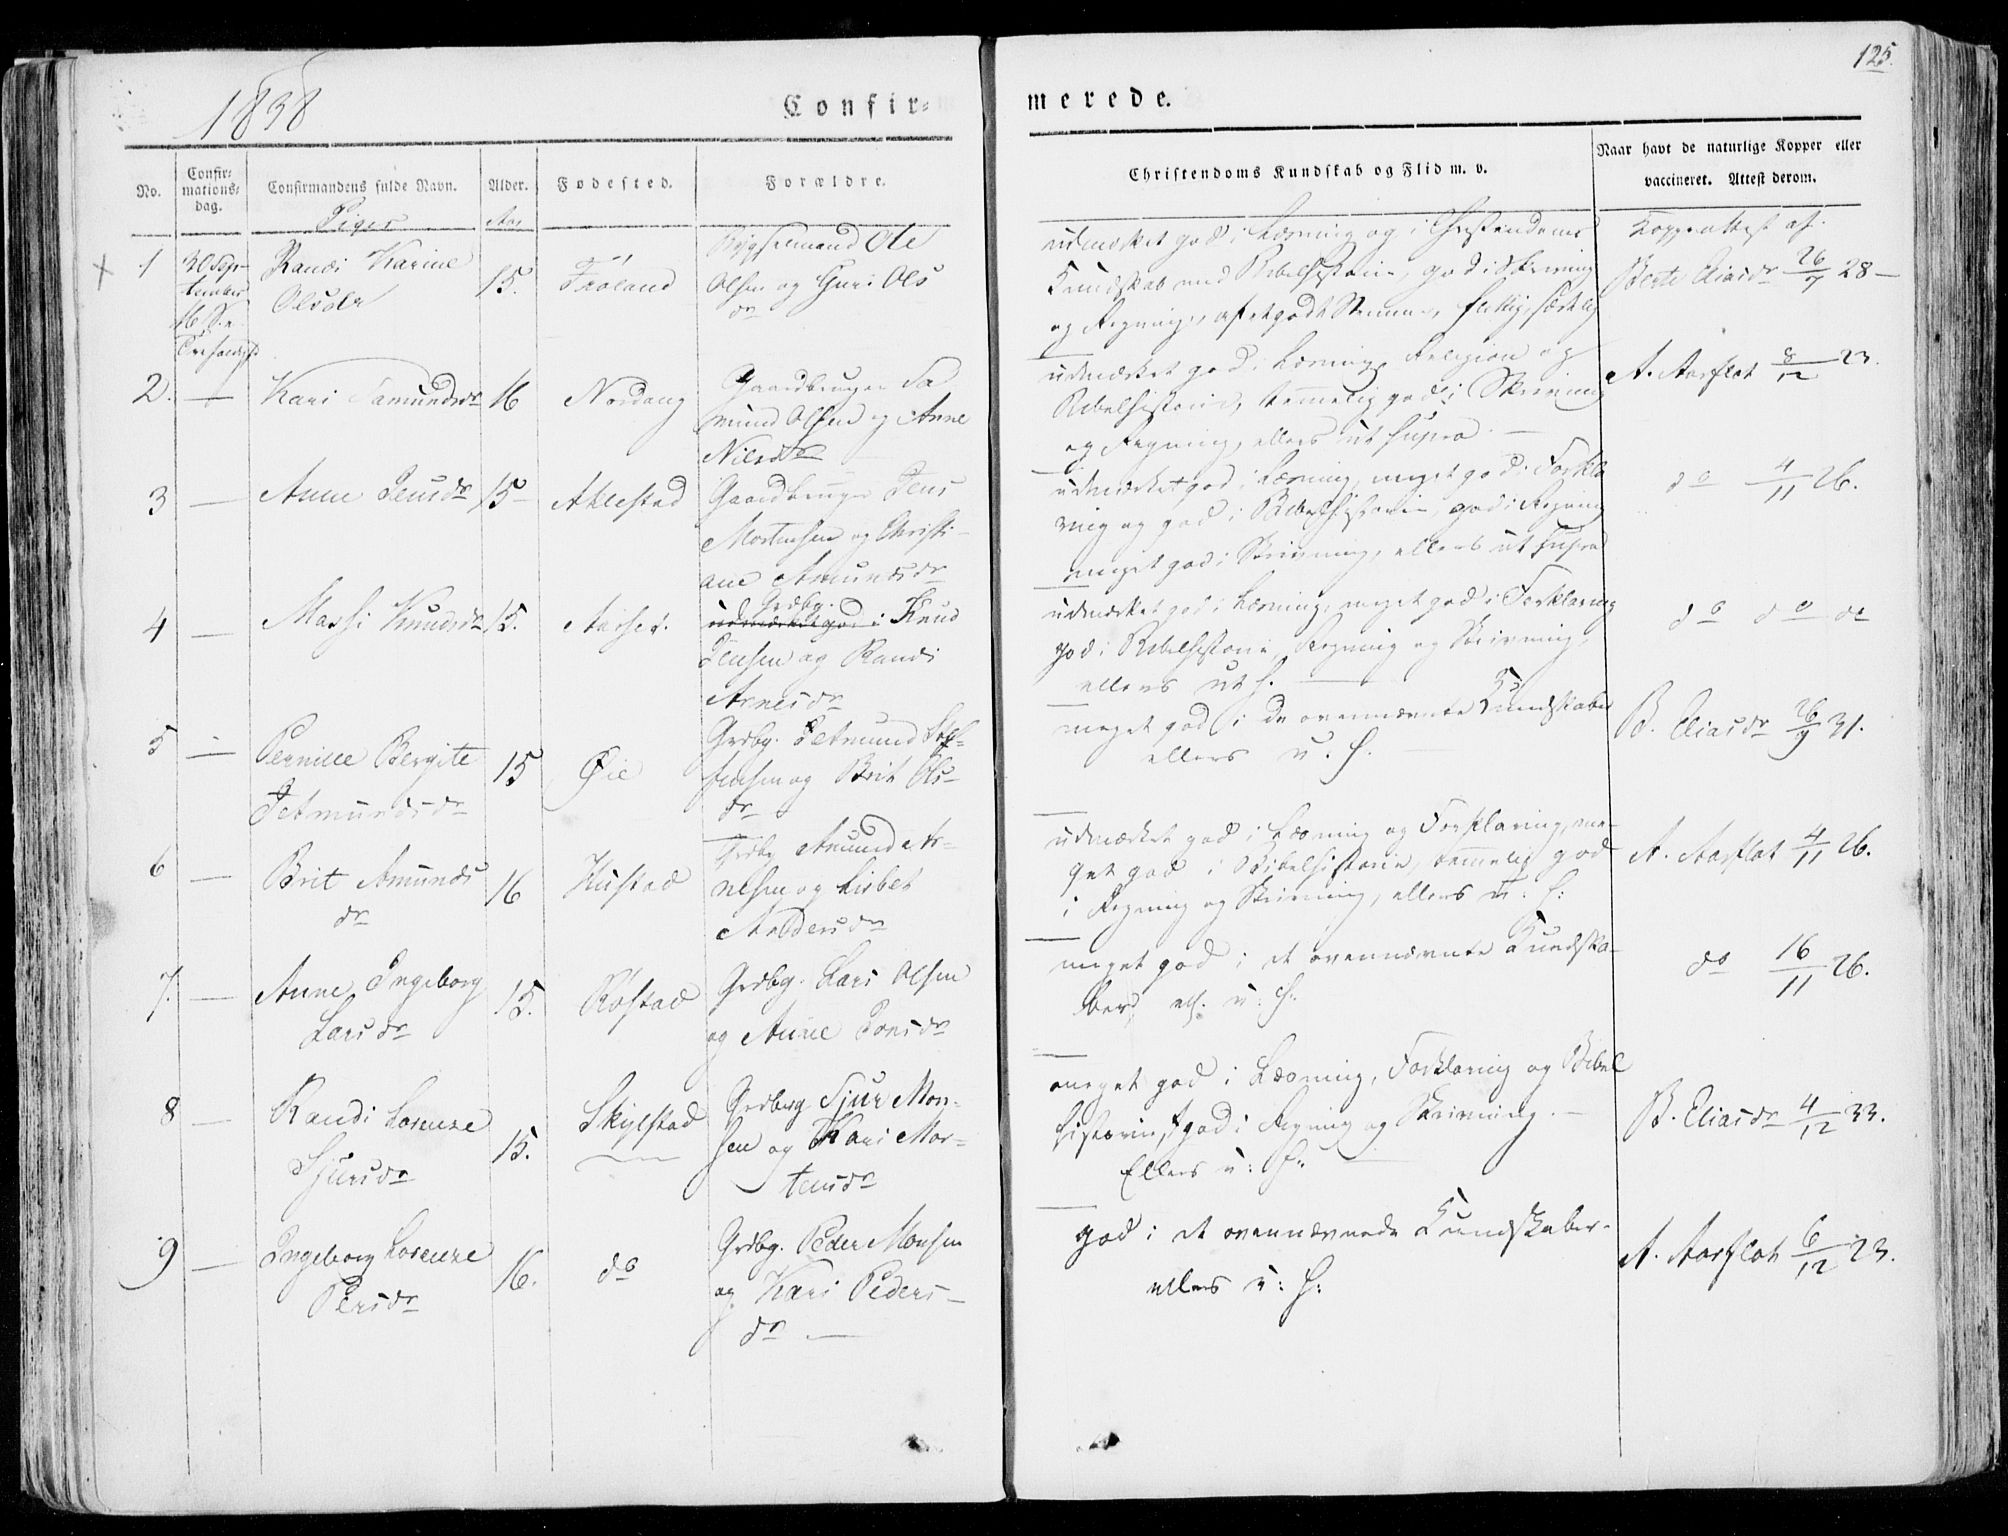 125.
1838
Confir=
merede.
No.
Confir=
mations=
dag.
Confirmandens fulde Navn.
Alder.
Fødested.
Forældre.
Christendoms Kundskab og Flid m. v.
Naar havt de naturlige Kopper eller
vaccineret. Attest derom.
Piger
Aar
1
30 Sep-
tember
16 S. e.
Randi Karine
Olsdr
15.
Frøland
Bygselmand Ole
Olsen og Guri Ols
dr
udmærket god i Læsning og i Christendoms
Kundskab med Bibelhistorie, god i Skrivning
og Regning, af et godt Nemme, flittig, sædelig
Koppeattest af
Berte Eliasdr 26/7 28 —
2. —
Kari Samundsdr
16
Nordang
Gaardbruger Sa
mund Olsen og Anne
Nilsdr
udmærket god i Læsning, Religion og
Bibelhistorie, temmelig god i Skrivning
og Regning, ellers ut supra —
A. Aarflot 8/12 23.
3 —
Anne Jensdr
15
Aklestad
Gaardbruger Jens
Mortensen og Christi-
ane Amundsdr
udmærket god i Læsning, meget god i Forkla
ring og god i Bibelhistorie, god i Regning
meget god i Skrivning, ellers ut supra
do 4/11 26.
4 —
Massi Knudsdr
15.
Aarset.
Grdbg.
udmærket god i Knud
Jensen og Randi
Arnesdr
udmærket god i Læsning, meget god i Forklaring
god i Bibelhistorie, Regning og Skrivning,
ellers ut s. —
do do do
5 —
Pernille Bergite
Jetmundsdr
15
Øie
Grdbg. Jetmund Stef-
fensen og Brit Ols-
dr
meget god i de ovennævnte Kundskaber
ellers u. s. —
B. Eliasdr 26/9 31.
6 —
Brit Amunds
dr
16
Hustad
Grdbg Amund Ar-
nesen og Lisbet
Andersdr
udmærket god i Læsning og Forklaring, me-
get god i Bibelhistorie, temmelig god
i Regning og Skrivning, ellers u. s:
A. Aarflot 4/11 26.
7. —
Anne Ingeborg
Larsdr
15.
Røstad
Grdbg. Lars Olsen
og Anne Jonsdr
meget god i de ovennævnte Kundska-
ber, u: s:
do 16/11 26.
8 —
Randi Lorense
Sjursdr
15.
Skylstad
Grdbrg Sjur Mon-
sen og Kari Mor-
tensdr
meget god i Læsning, Forklaring og Bibel
historie, god i Regning og Skrivning. —
Ellers u: s: —
B. Eliasdr 4/12 33.
9 —
Ingeborg Lorense
Persdr
16.
do
Grdbg. Peder Monsen
og Kari Peders-
dr —
god i de ovennævnede Kundskaber-
ellers u: s:
A. Aarflot 6/12 23.